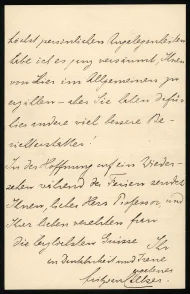 höchst persönlichen Angelegenheiten
habe ich es ganz versäumt, Ihnen
von hier im Allgemeinen zu
erzählen – aber Sie haben dafür
hier andere viel bessere Be-
richterstatter!
In der Hoffnung auf ein Wieder-
sehen während der Ferien sendet
Ihnen, lieber Herr Professor, und
Ihrer lieben verehrten Frau
die herzlichsten Grüsse Ihr
in Dankbarkeit und Treue